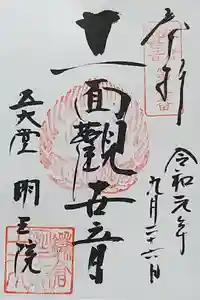 奉拝
令和元年
九月二十六日
十一面觀世音
五大堂 明王院